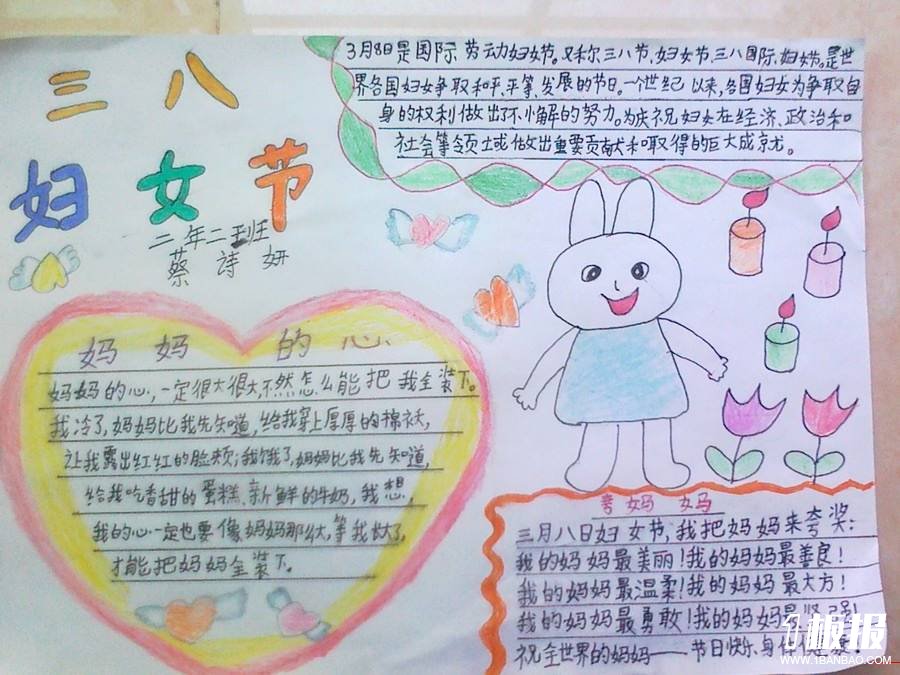 三八
妇女节
二年二班
蔡诗妍
3月8日是国际劳动妇女节。又称三八节、妇女节、三八国际妇女节。是世
界各国妇女争取和平、平等、发展的节日。一个世纪以来,各国妇女为争取自
身的权利做出了不小懈的努力。为庆祝妇女在经济、政治和
社会等领土或做出重要贡献和取得的巨大成就。
妈妈的心
妈妈的心,一定很大很大,不然怎么能把我全装下。
我冷了,妈妈比我先知道,给我穿上厚厚的棉衣,
让我露出红红的脸颊;我饿了,妈妈比我先知道,
给我吃香甜的蛋糕、新鲜的牛奶,我想,
我的心一定也要像妈妈那么大,等我长大了,
才能把妈妈全装下。
夸妈妈
三月八日妇女节,我把妈妈来夸奖:
我的妈妈最美丽!我的妈妈最善良!
我的妈妈最温柔!我的妈妈最大方!
我的妈妈最勇敢!我的妈妈最坚强!
祝全世界的妈妈——节日快乐身体健康!
板报
WWW.1BANBAO.COM